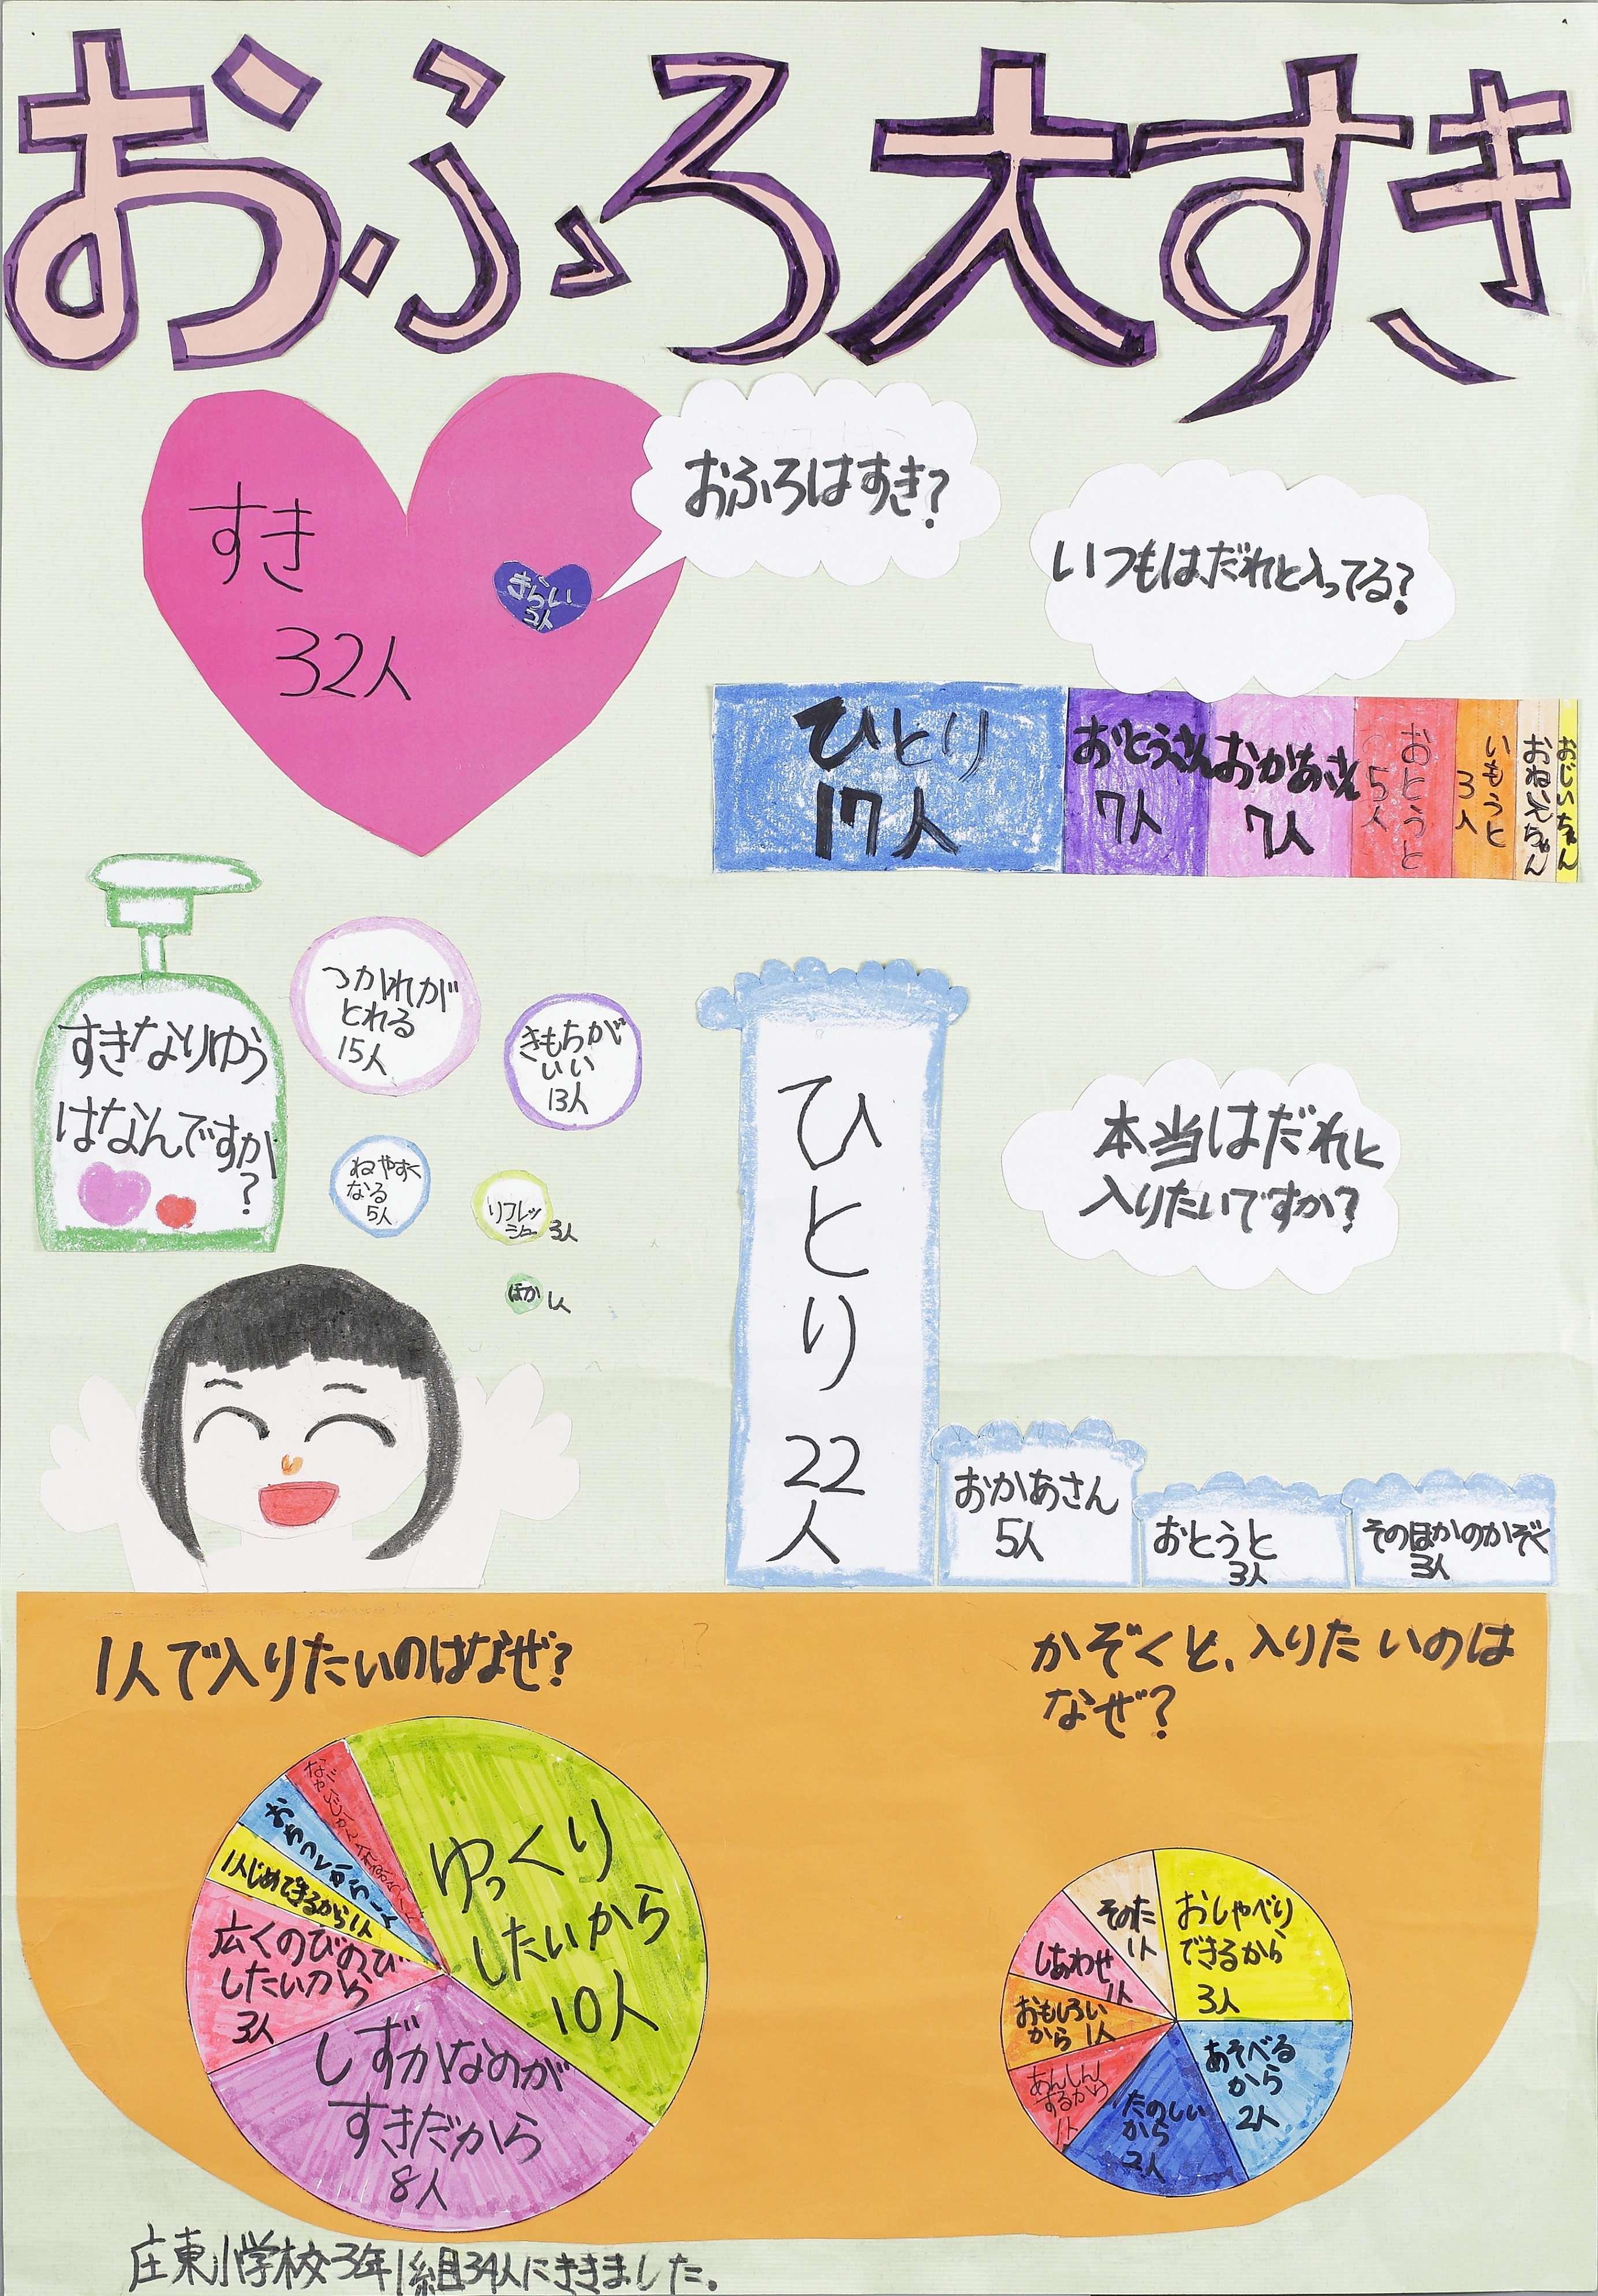 おふろ大すき
おふろはすき?
すき
32人
きらい
2人
いつもはだれと入ってる?
ひとり
17人
おとうさん
7人
おかあさん
7人
おとうと
5人
いもうと
3人
おねえちゃん
おじいちゃん
すきなりゆう
はなんですか
?
つかれが
とれる
15人
きもちが
いい
13人
ねやすく
なる
5人
リフレッ
シュー
3人
ほか
1人
本当はだれと
入りたいですか?
ひとり
22
人
おかあさん
5人
おとうと
3人
そのほかのかぞく
3人
1人で入りたいのはなぜ?
ゆっくり
したいから
10人
しずかなのが
すきだから
8人
広くのびのび
したいから
3人
1人じめできるから1人
かぞくと、入りたいのは
なぜ?
おしゃべり
できるから
3人
あそべる
から
2人
たのしい
から
2人
あんしん
するから
1人
おもしろい
から 1人
しあわせ
1人
そのた
1人
庄東小学校3年1組34人にききました。